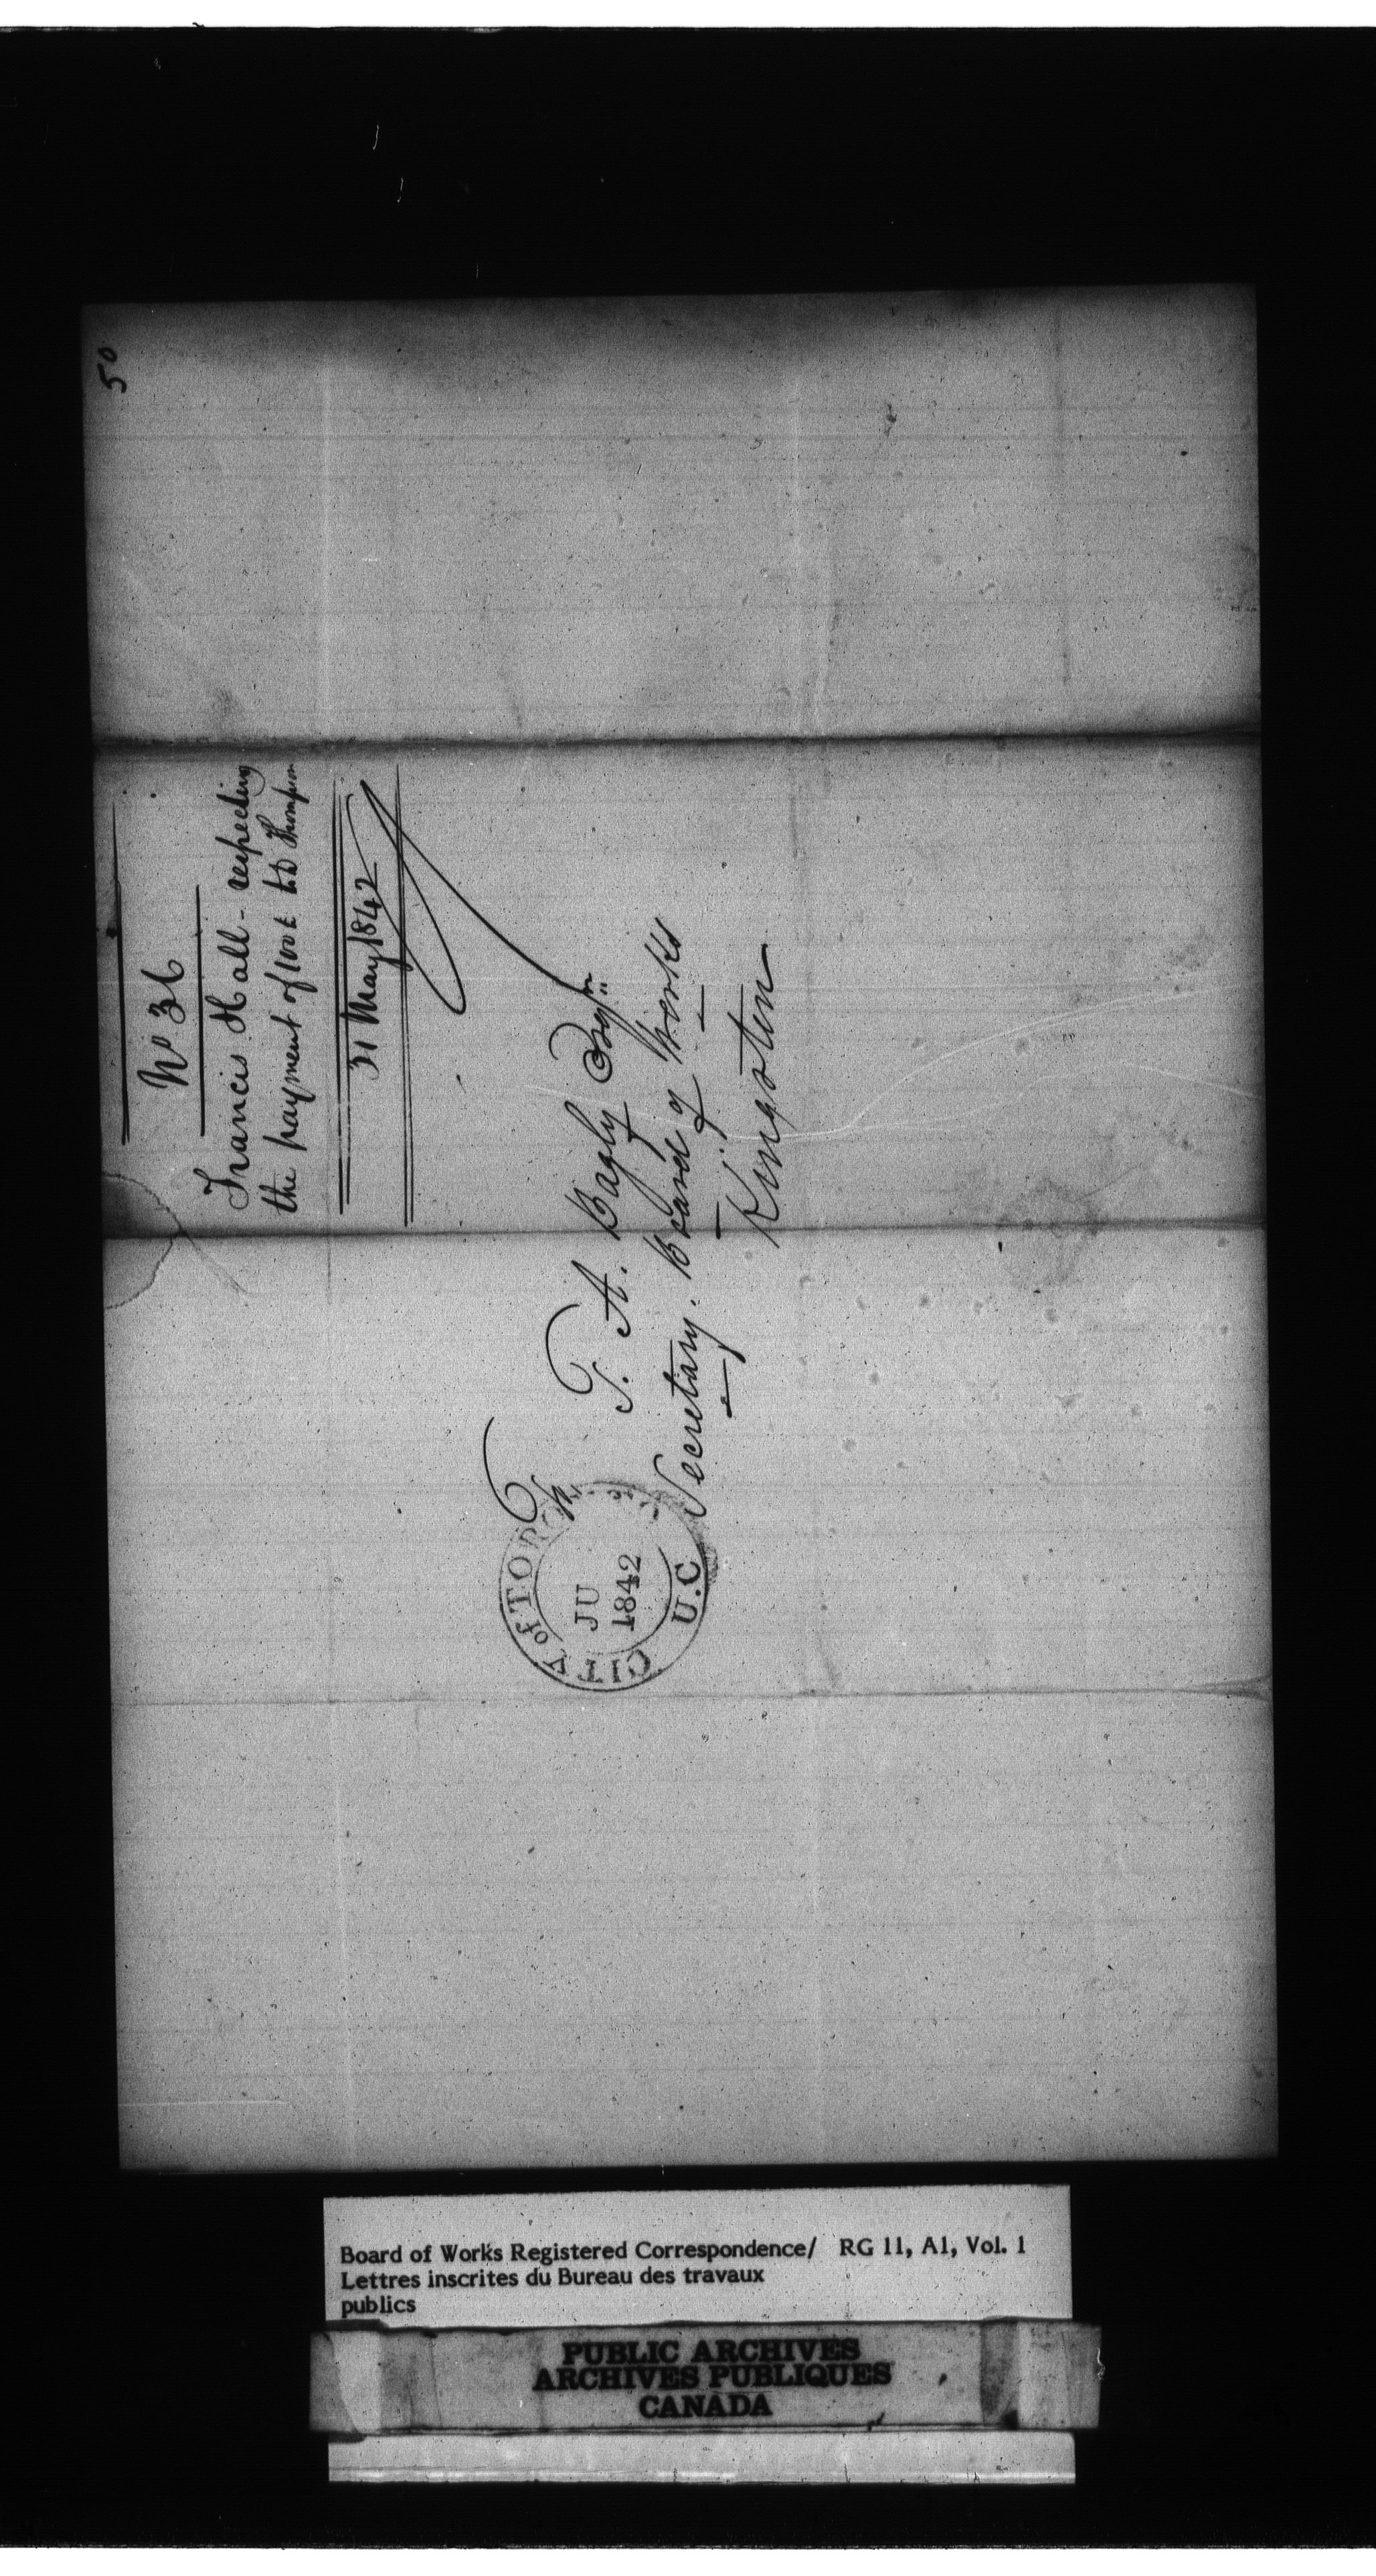 50
No 36
Francis Hall - respecting
the payment of 100£ to D Thompson
31 May 1842
T. A. Begly Esqr
Secretary. Board of Works
Kingston
CITY of TORONTO
JU
1842
U.C
Board of Works Registered Correspondence/ RG 11, A1, Vol. 1
Lettres inscrites du Bureau des travaux
publics
PUBLIC ARCHIVES
ARCHIVES PUBLIQUES
CANADA